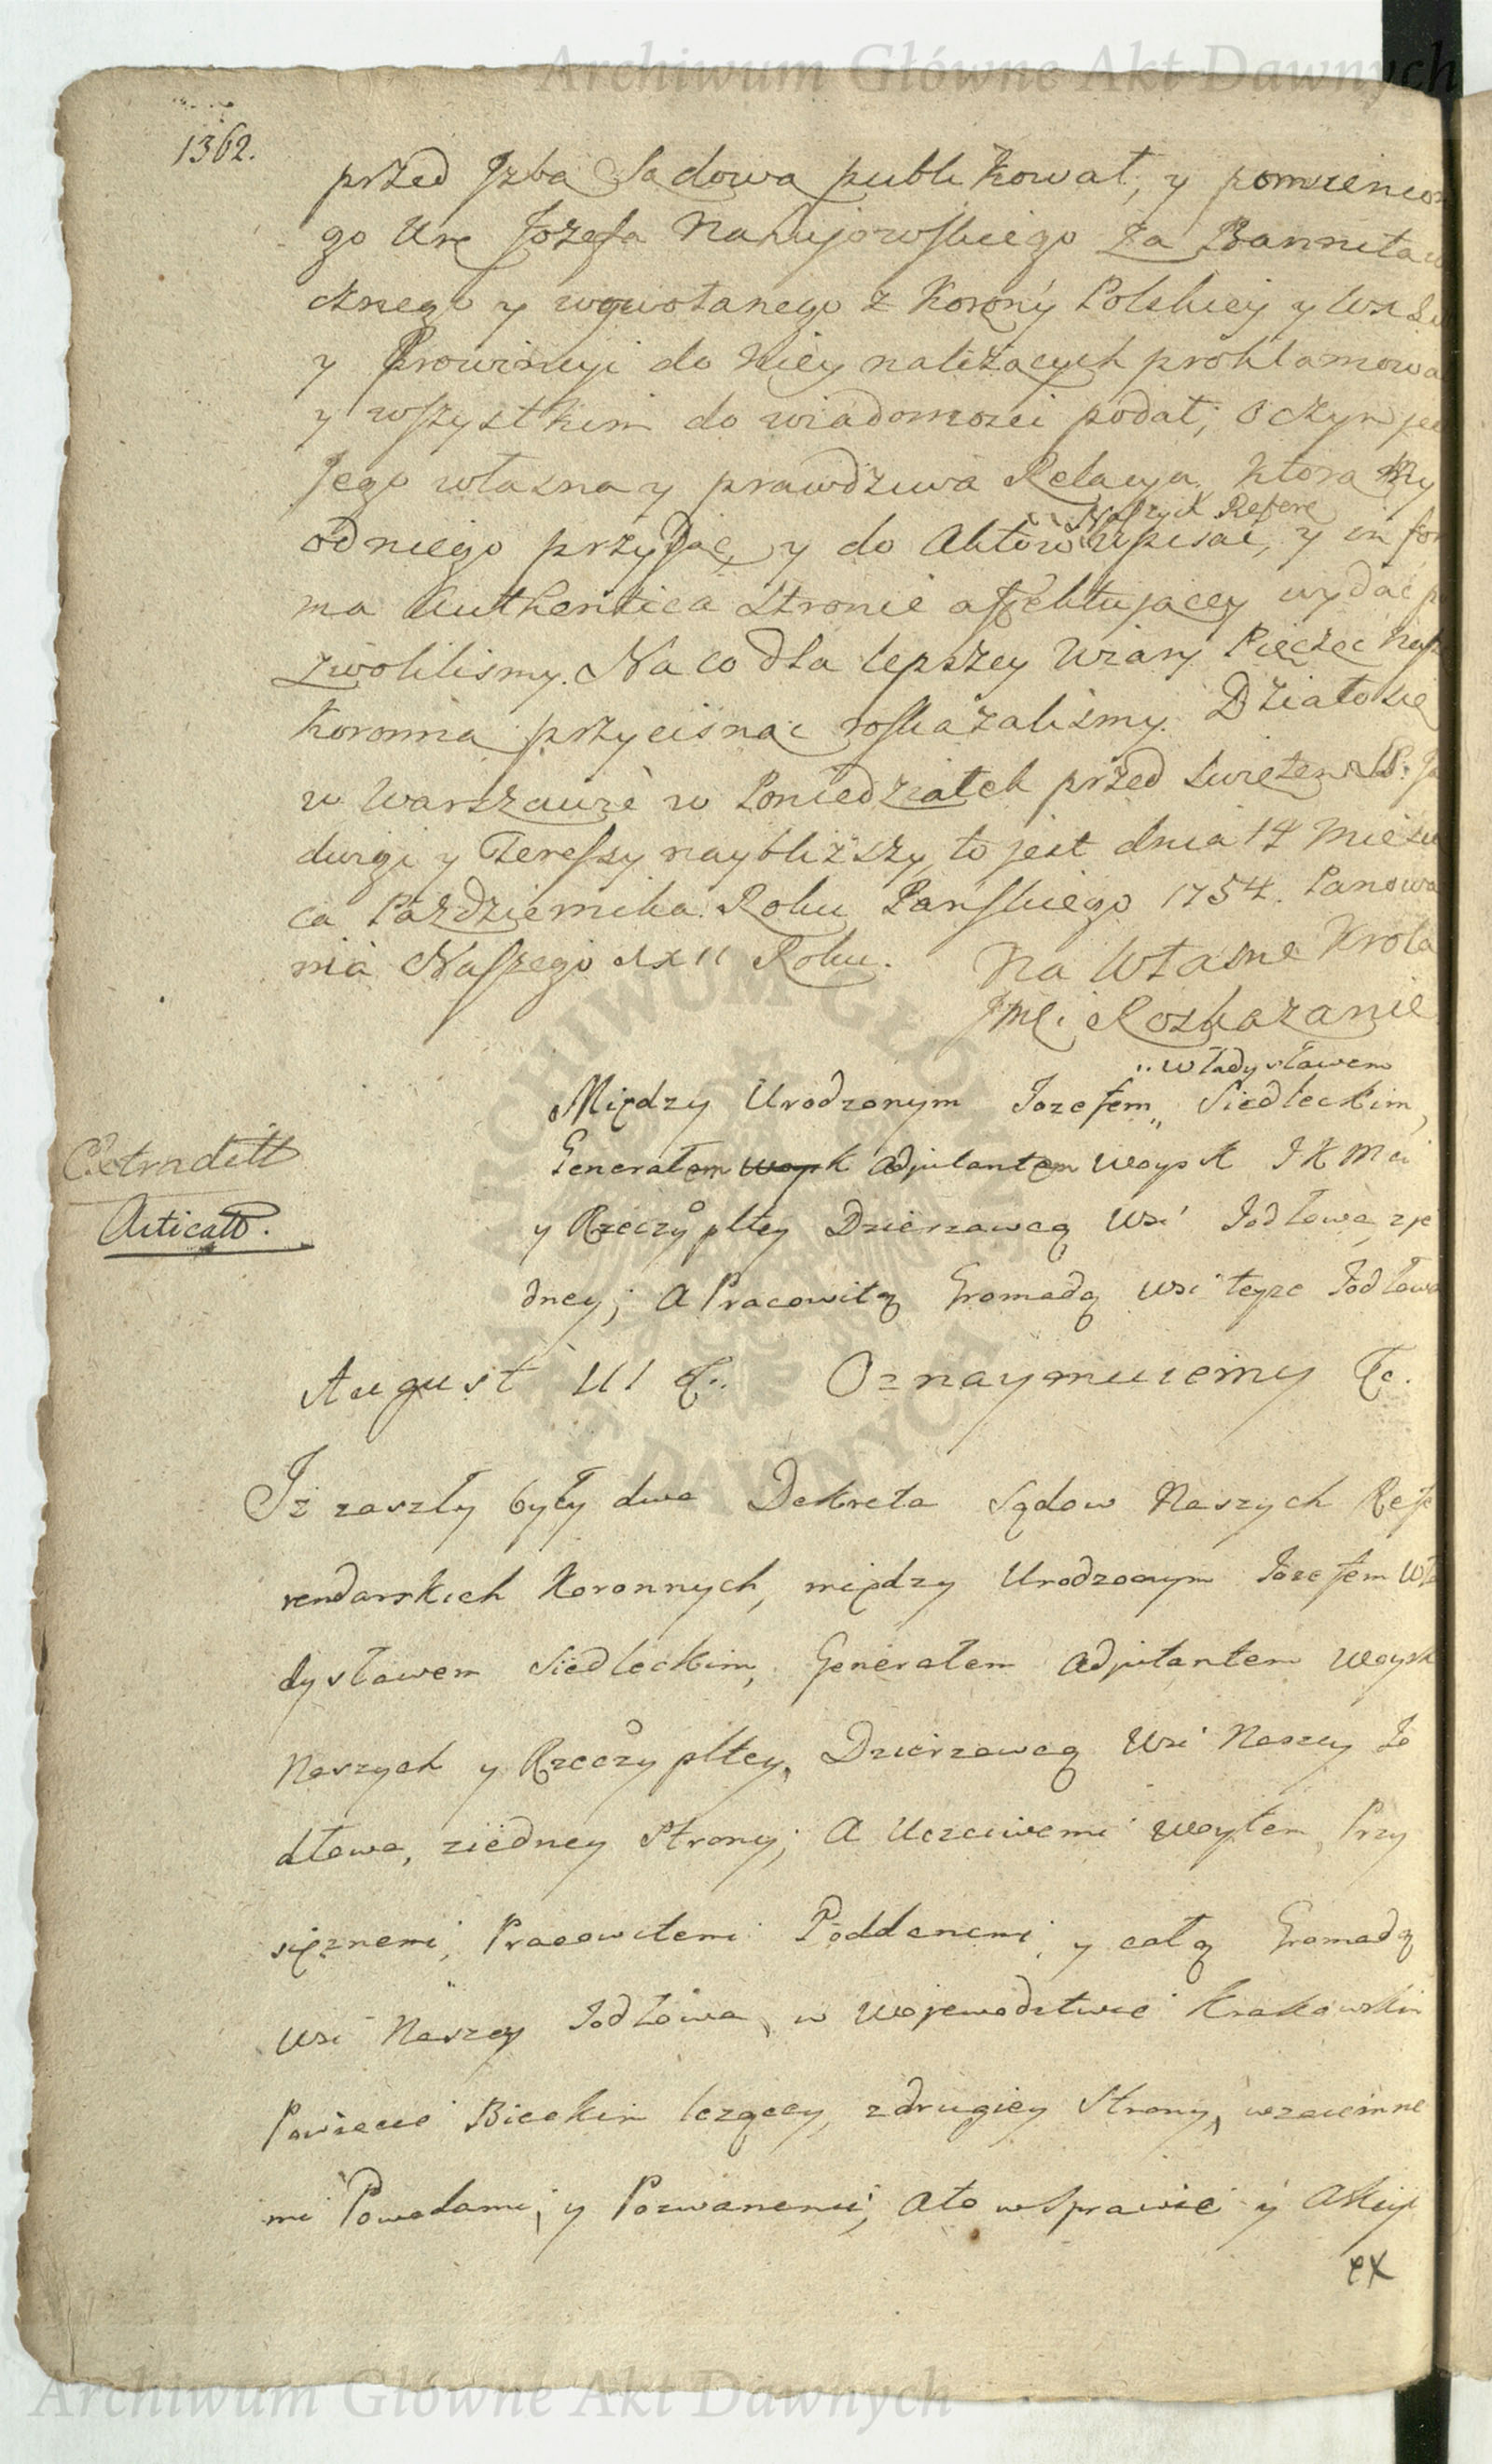 Archiwum Główne Akt Dawnych
1362.
przed Jzba Sadowa publikował, y pomienion
go Ure Jozefa Nahujowskiego za Bannita w
cznego y wywołanego z Korony Polskiey y
y Prowincyi do Niey należacych proklamowa
y wszystkim do wiadomosci podał, o czym jes
Jego własna y prawdziwa Relacya, ktora My
od niego przyjąc, y do Aktow Naszych Refere upisac, y in for
ma Authentica Stronie affektujacey wydać po
zwolilismy. Na co dla lepszey Wiary Pięczęc Nasz
Koronna przycisnac roskazalismy. Działo się
w Warszawie w Poniedziałek przed Swiętem SS. Ja
dwigi y Teressy naybliższy, to jest dnia 14 Miesia
ca Pazdziernika Roku Panskiego 1754. Panowa
nia Naszego XXII Roku. Na Własne Krola
Jmci Roskazanie
Extradett
Articatt.
Między Urodzonym Jozefem Władysławem Siedleckim,
Generałem Adjutantem Woysk JKMci
y Rzeczypltey Dzierzawcą Wsi Jodłowa, z je
dney; A Pracowitą Gromadą Wsi teyze Jodłowa
August III &.. Oznaymuiemy &c.
Iż zaszły były dwa Dekreta Sądow Naszych Refe
rendarskich Koronnych, między Urodzonym Jozefem Wła
dysławem Siedleckim, Generałem Adjutantem Woysk
Naszych y Rzeczypltey, Dzierzawcą Wsi Naszey Jo
dłowa, ziedney Strony; A Uczciwemi Woytem, Przy
sięznemi, Pracowitemi Poddanemi, y całą Gromadą
Wsi Naszey Jodłowa, w Wojewodztwie Krakowskim
Powiecie Bieckim lezącey, zdrugiey Strony, wzaiemne
mi Powodami, y Pozwanemi, Ato w Sprawie y Akcyi
ex
Archiwum Główne Akt Dawnych